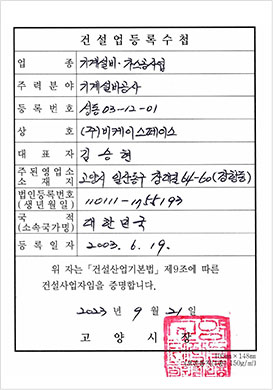 건설업등록수첩
업 종 기계설비·가스공사업
주력분야 기계설비공사
등록번호 성동03-12-01
상 호 (주)비케이스페이스
대 표 자 김승현
주된영업소
소 재 지 고양시 일산동구 64-60(장항동)
법인등록번호
(생년월일) 110111-
국 적
(소속국가명) 대한민국
등록일자 2003. 6. 19.
위 자는「건설산업기본법」제9조에 따른
건설사업자임을 증명합니다.
2023 년 9 월 21 일
고 양 시 장